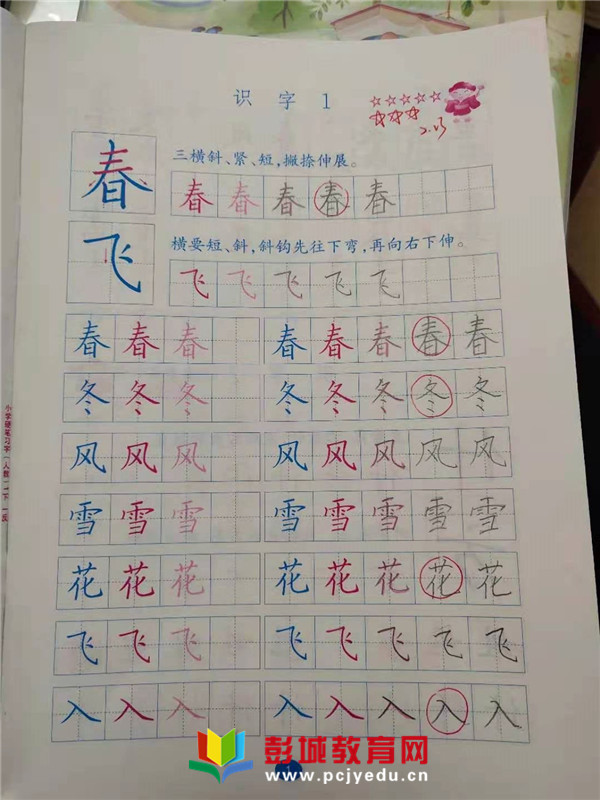 识 字 1
2.23
三横斜、紧、短,撇捺伸展。
春
春 春 春 春 春
飞
横要短、斜,斜钩先往下弯,再向右下伸。
飞 飞 飞 飞 飞
春 春 春 春 春 春 春 春
冬 冬 冬 冬 冬 冬 冬 冬
风 风 风 风 风 风 风 风
雪 雪 雪 雪 雪 雪 雪 雪
花 花 花 花 花 花 花 花
飞 飞 飞 飞 飞 飞 飞 飞
入 入 入 入 入 入 入 入
1
彭城教育网
www.pcjyedu.cn